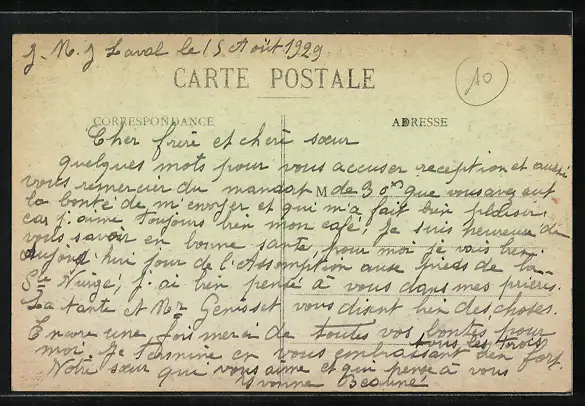 J. M. J Laval le 15 Août 1929
CARTE POSTALE
10
CORRESPONDANCE
ADRESSE
Cher frère et chère sœur
quelques mots pour vous accuser reception et aussi
vous remercier du mandat M de 30 que vous avez eut
la bonté de m'envoyer et qui m'a fait bien plaisir
car j'aime toujours bien mon café! Je suis heureuse de
vous savoir en bonne santé, pour moi je vais bien
aujourd'hui jour de l'Assomption aux pieds de la
Ste Vierge, j'ai bien pensé à vous dans mes prières.
La tante et Mr Genisset vous disent bien des choses.
Encore une fois merci de toutes vos bontés pour
moi. Je termine en vous embrassant bien fort.
tous les trois
Votre sœur qui vous aime et qui pense à vous
Yvonne